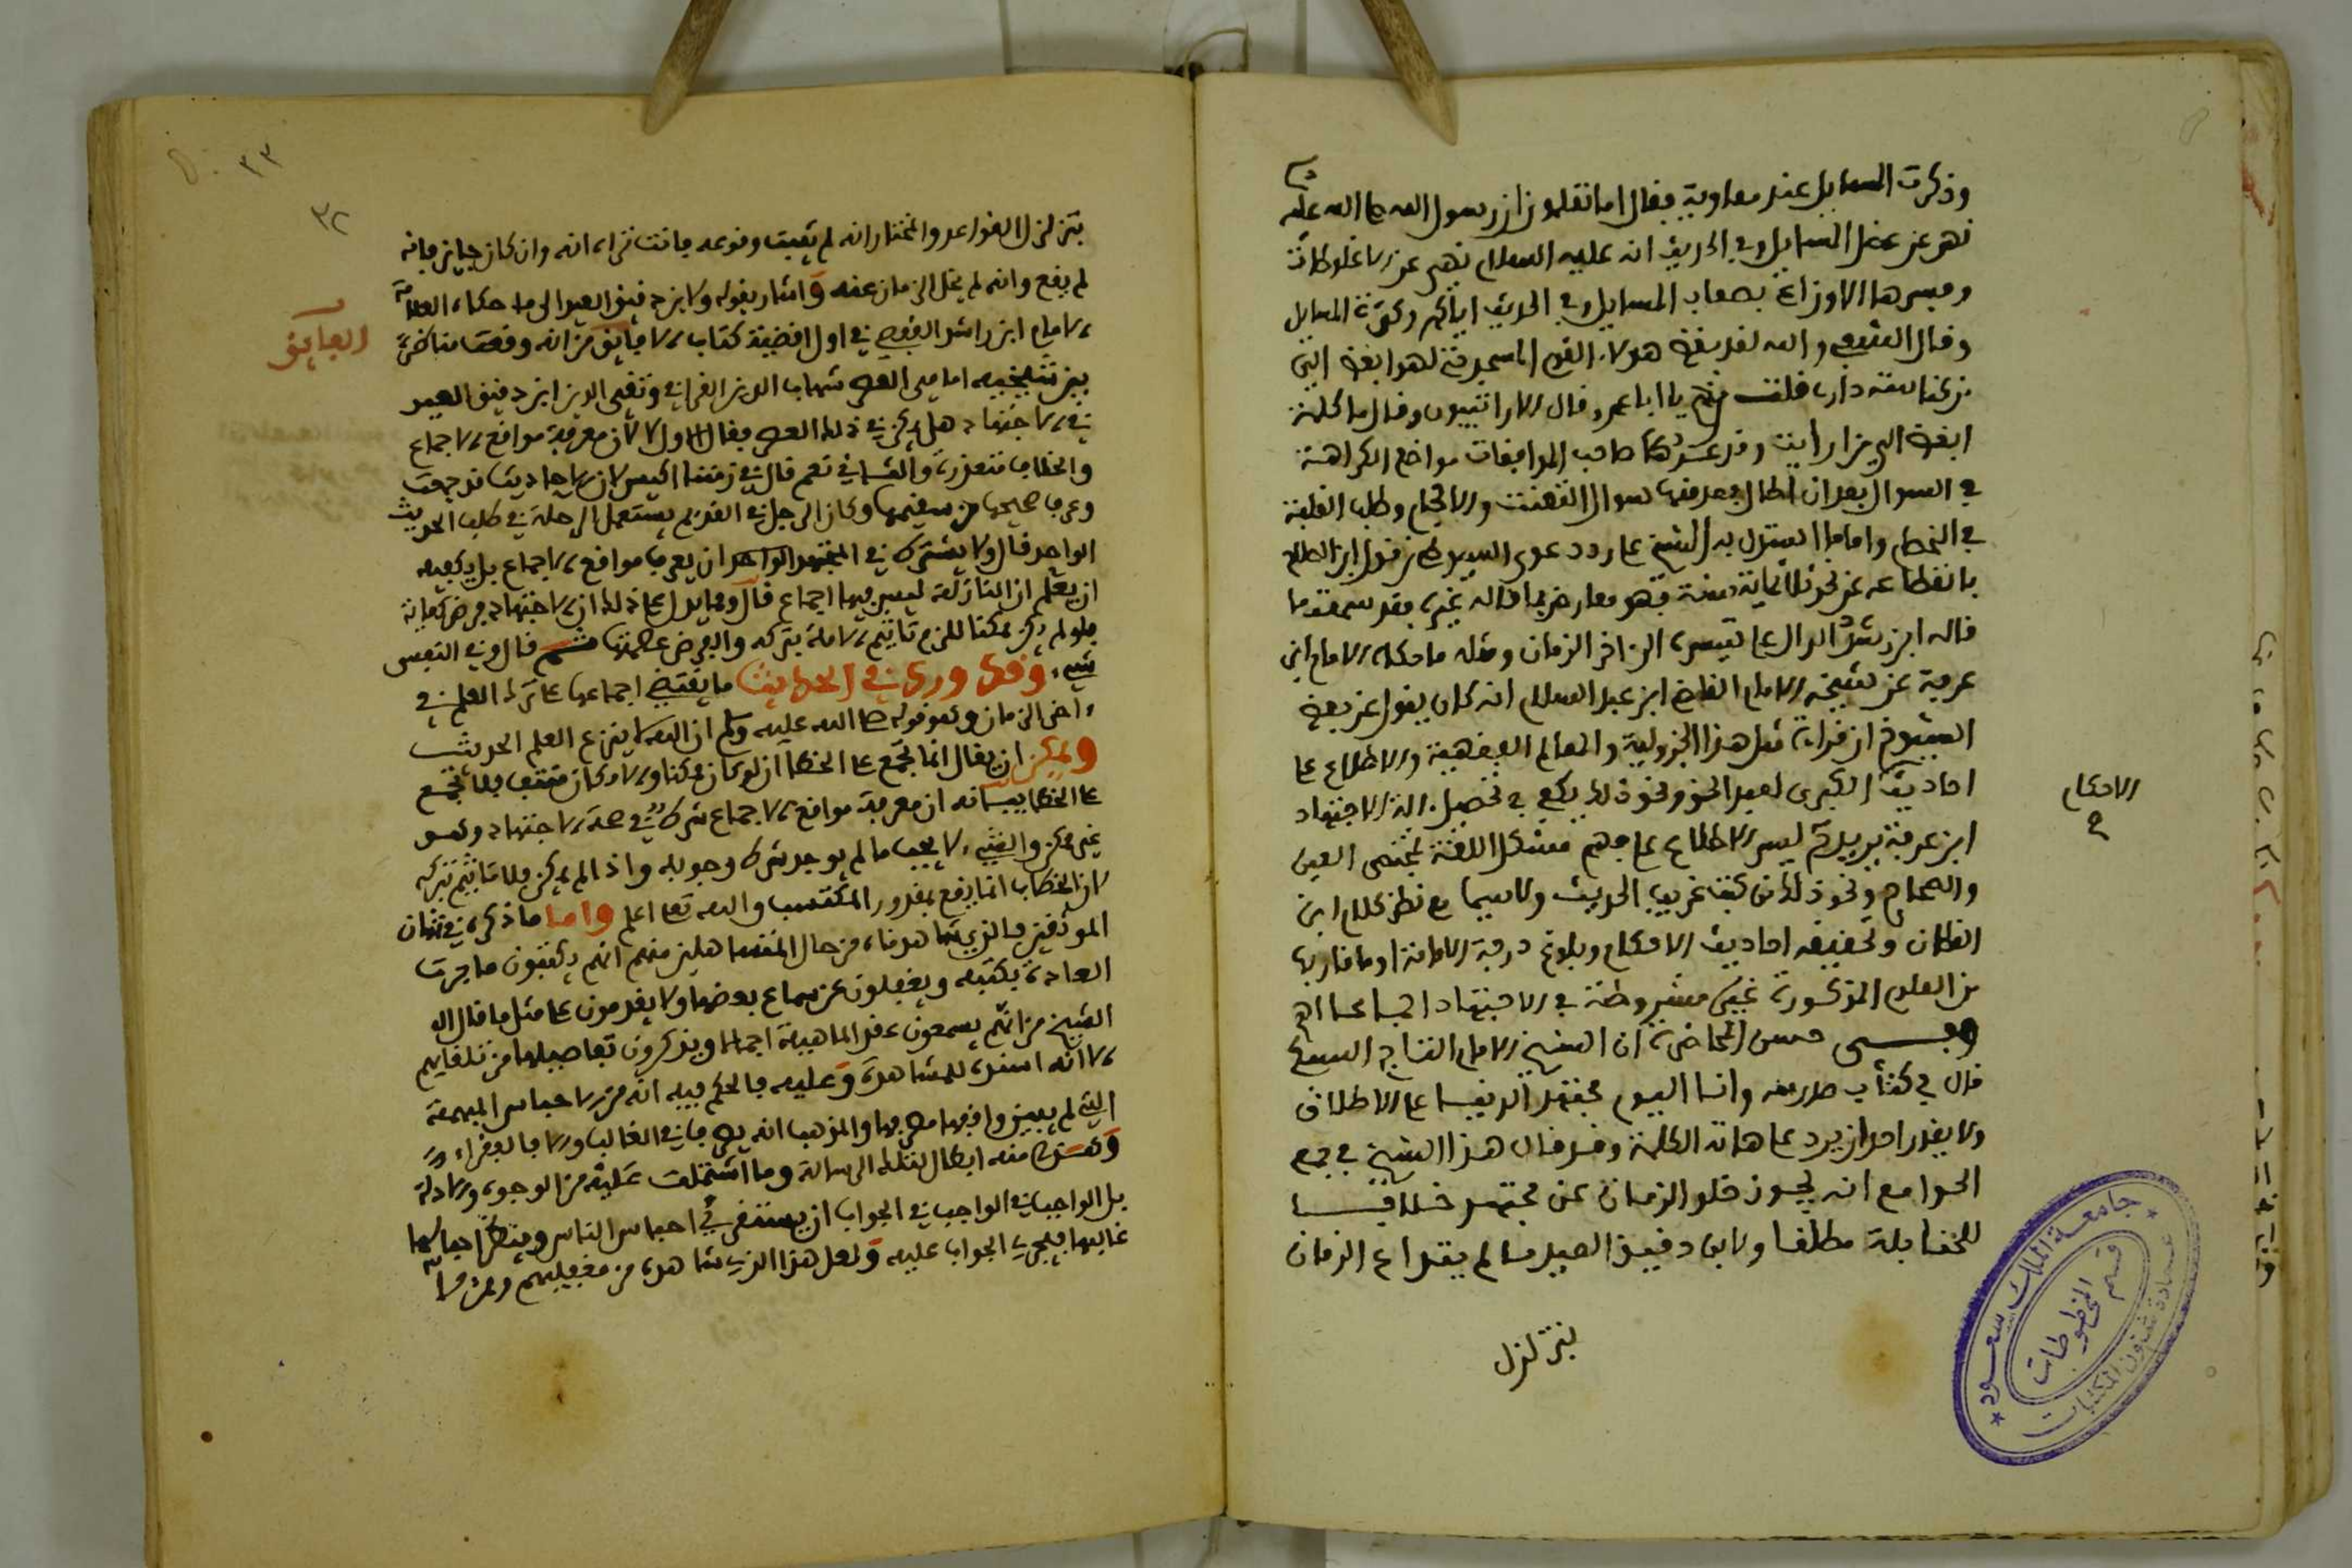 وذكرت المسايل عند معاوية فقال اما تعلمون ان رسول الله صلى الله عليه
نهى عن عضل المسايل وفي الحديث انه عليه السلام نهى عن الاغلوطات
وفسرها الاوزاعي بصعاب المسايل وفي الحديث اياكم وكثرة المسايل
وقال الشعبي والله لقد بغض هولاء القوم المسجد فهو ابغض الي
من كناسة داري قلت من هم يا ابا عمرو قال الارائتيون وقال ما كلمة
ابغض الي من ارايت وقد صاحب الموافقات مواضع الكراهة
في السوال بعد ان سوال التعنت والافحام وطلب الغلبة
في الخصام واما ما استدل به الشيخ على رد دعوى السيوطي من قول ابن الصلاح
بانقطاعه عن نحو ثلاثماية سنة فهو معارض بما قاله غيره فقد سمعت ما
قاله ابن رشد الدال على تيسره الى اخر الزمان ومثله ما حكاه الامام ابن
عرفة عن شيخه الامام القاضي ابن عبد السلام انه كان يقول عن بعض
الشيوخ ان قراءة مثل هذا الجزولية والمعالم الفقهية والاطلاع على
احاديث الكبرى لعبد الحق ونحو ذلك يكفي في تحصيل الة الاجتهاد
الاحكام
ابن عرفة يريد مع يسر الاطلاع على فهم مشكل اللغة بمختصر العين
والصحاح ونحو ذلك من كتب غريب الحديث ولاسيما مع نظر كلام ابن
القطان وتحقيقه احاديث الاحكام وبلوغ درجة الامامة او ما قاربها
من العلوم المذكورة غير مشروطة في الاجتهاد اجماعا اهـ
وفي حسن المحاضرة ان الشيخ الامام التاج السبكي
قال في كتاب وانا اليوم مجتهد الدنيا على الاطلاق
ولا يقدر احد ان يرد على هاته الكلمة وقد قال هذا الشيخ في جمع
الجوامع انه يجوز خلو الزمان عن مجتهد خلافا
للحنابلة مطلقا ولابن دقيق العيد ما لم يتداع الزمان
بتزلزل
جامعة الملك سعود
عمادة شئون المكتبات
قسم المخطوطات
٣٣
٣٢
بتزلزل القواعد والمختار انه لم يثبت وقوعه فانت تراه انه وان كان جايز فانه
لم يقع وانه لم يخل الزمان عنه واشار بقوله ولابن دقيق العيد الى ما حكاه العلامة
الامام ابن راشد القفصي في اول اقضية كتاب الفايق من انه وقعت مناظرة
الفايق
بين شيخيه امامي العصر شهاب الدين القرافي وتقي الدين ابن دقيق العيد
في الاجتهاد هل يمكن في ذلك العصر فقال الاول لا لان معرفة مواقع الاجماع
والخلاف متعذرة والثاني نعم قال في زمننا ايسر لان الاحاديث قد جمعت
وعرف صحيحها من سقيمها وكان الرجل في القديم يستعمل الرحلة في طلب الحديث
الواحد قال ولا يشترط في المجتهد الواحد ان يعرف مواقع الاجماع بل يكفيه
ان يعلم ان النازلة ليس فيها اجماع قال ومما يدل على ذلك ان الاجتهاد فرض كفاية
فلو لم يكن ممكنا للزم تاثيم الامة بتركه والفرض عصمتها قال وفي النفس
شيء وقد ورد في الحديث ما يقتضي اجماعها على ترك العلم في
اخر الزمان وهو قوله صلى الله عليه وسلم ان الله لا ينزع العلم الحديث
ويمكن ان يقال انما تجمع على الخطا ان لو كان ممكنا والامكان منتف فلا تجمع
على الخطا بيانه ان معرفة مواقع الاجماع شرط في صحة الاجتهاد وهو
غير ممكن والشيء لا يجب ما لم يوجد شرط وجوبه واذا لم يكن فلا تاثيم بتركه
لان الخطاب انما يقع بمقدور المكتسب والله تعالى اعلم واما ما ذكره في شان
الموثقين فالذي شاهدناه من حال المتساهلين منهم انهم يكتبون ما جرت
العادة بكتبه ويغفلون عن سماع بعضها ولا يقدمون على مثل ما قال
الشيخ من انهم يسمعون عقد الماهية اجمالا ويذكرون تفاصيلها من تلقايهم
الا انه اسند للمشاهدة وعليه فالحكم فيه انه من الاحباس المبهمة
التي لم يبين واقفها مصرفها والمذهب انه يصرف في الغالب والا فالفقراء
منه ابطال لتلك الرسالة وما اشتملت عليه من الوجوه والادلة
بل الواجب في الجواب ان يستقرى في احباس الناس وينظر احبالها
غالبها فيجري الجواب عليه ولعل هذا الذي شاهده من مغفليهم